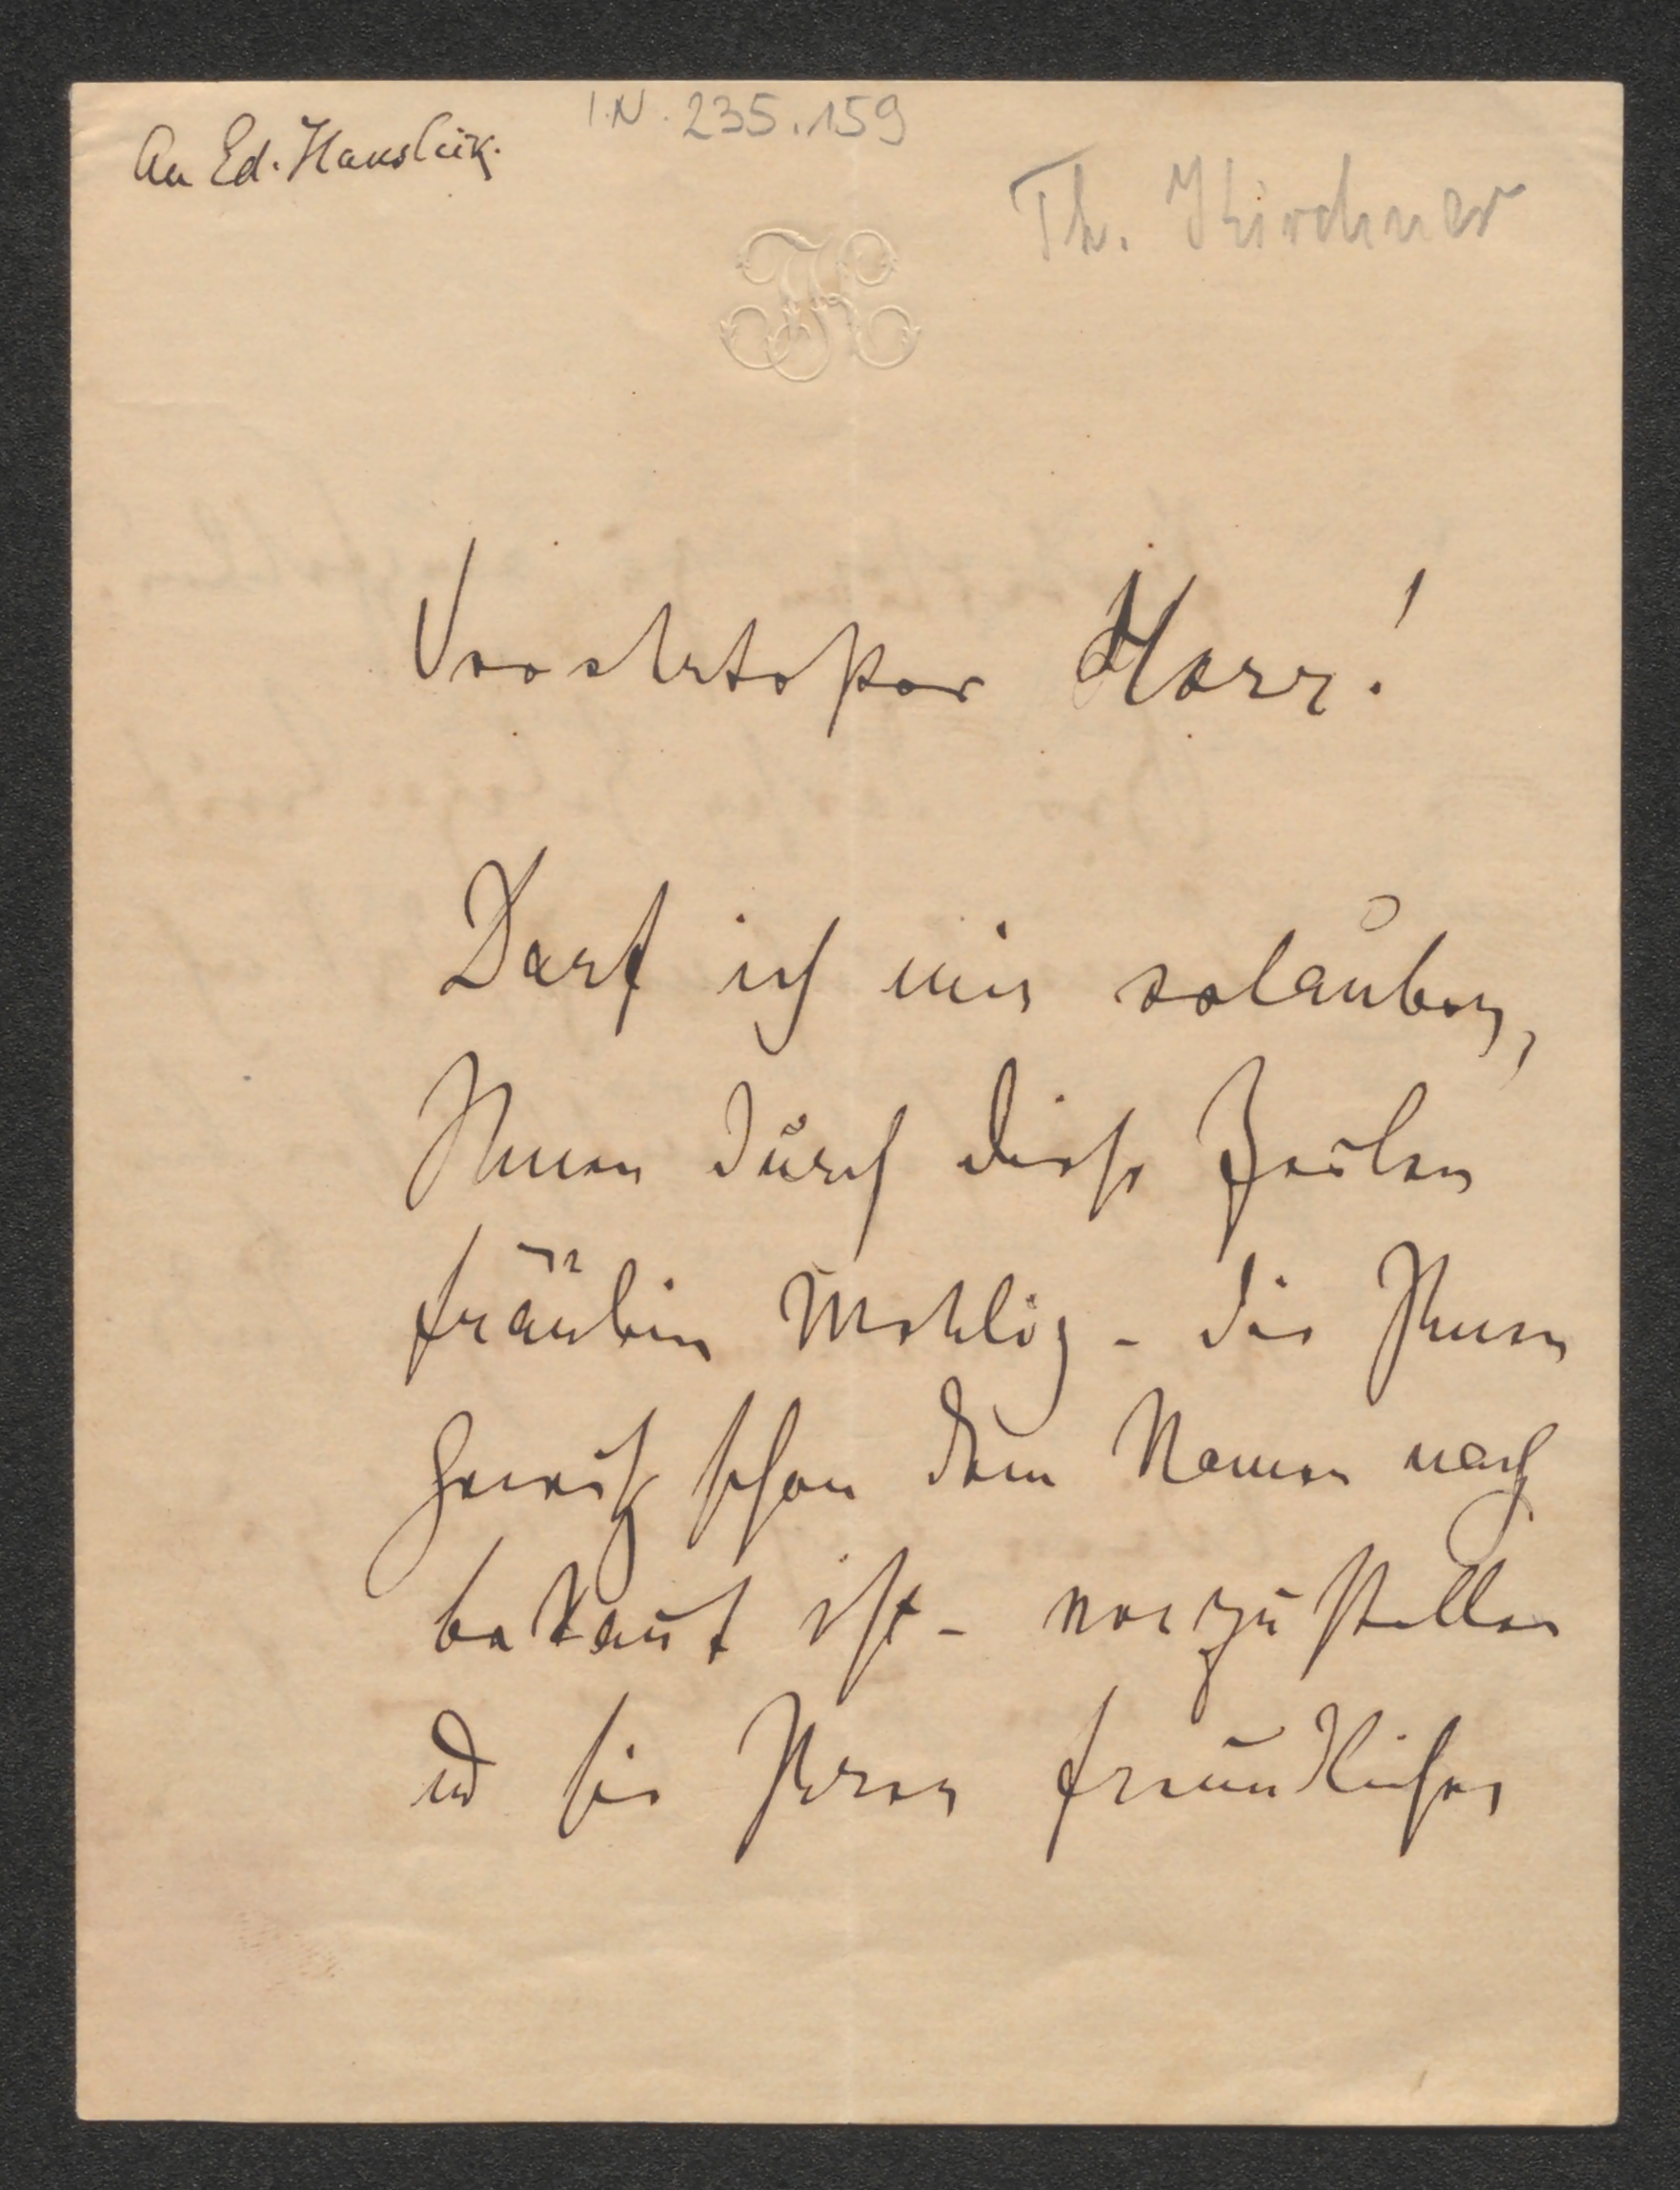 An Ed. Hanslick.
I.N. 235.159
Th. Kirchner
TK
Verehrtester Herr!
Darf ich mir erlauben,
Ihnen durch diese Zeilen
Fräulein Mehlig - die Ihnen
gewiß schon dem Namen nach
bekañt ist - vorzustellen
ud sie Ihrer freundlichen